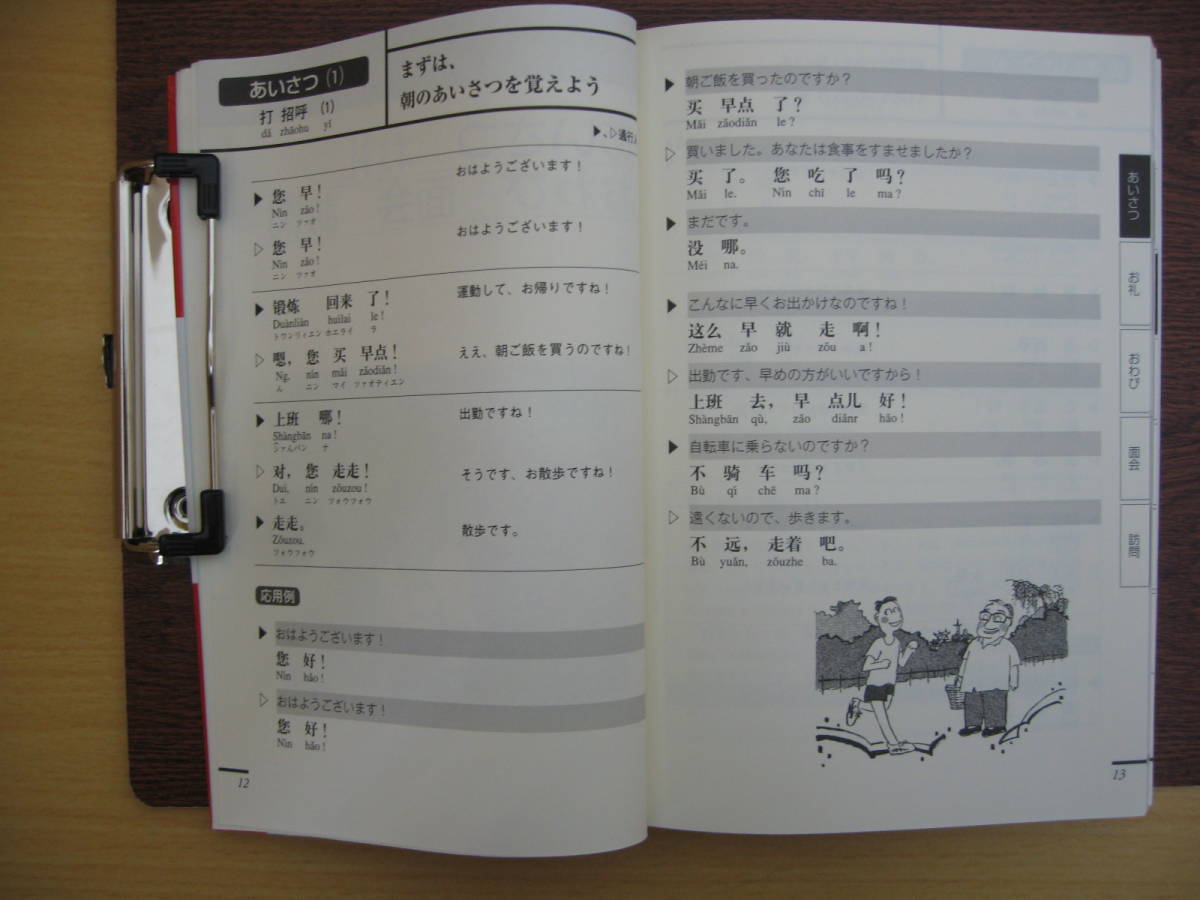 あいさつ (1)
打 招呼 (1)
dǎ zhāohu yī
まずは、
朝のあいさつを覚えよう
▶、▷通行人
おはようございます！
▶ 您 早！
Nín zǎo !
ニン ツァオ
おはようございます！
▷ 您 早！
Nín zǎo !
ニン ツァオ
運動して、お帰りですね！
▶ 锻炼 回来 了！
Duànliàn huílai le !
トウンリィエン ホエライ ラ
ええ、朝ご飯を買うのですね！
▷ 嗯，您 买 早点！
Ng, nín mǎi zǎodiǎn !
ん ニン マイ ツァオティエン
出勤ですね！
▶ 上班 哪！
Shàngbān na !
シァんパン ナ
そうです、お散歩ですね！
▷ 对，您 走走！
Duì, nín zǒuzou !
トエ ニン ツォウツォウ
散歩です。
▶ 走走。
Zǒuzou.
ツォウツォウ
応用例
▶ おはようございます！
您 好！
Nín hǎo !
▷ おはようございます！
您 好！
Nín hǎo !
12
▶ 朝ご飯を買ったのですか？
买 早点 了？
Mǎi zǎodiǎn le ?
▷ 買いました。あなたは食事をすませましたか？
买 了。 您 吃 了 吗？
Mǎi le. Nín chī le ma ?
▶ まだです。
没 哪。
Méi na.
▶ こんなに早くお出かけなのですね！
这么 早 就 走 啊！
Zhème zǎo jiù zǒu a !
▷ 出勤です、早めの方がいいですから！
上班 去，早 点儿 好！
Shàngbān qù, zǎo diǎnr hǎo !
▶ 自転車に乗らないのですか？
不 骑 车 吗？
Bù qí chē ma ?
▷ 遠くないので、歩きます。
不 远，走着 吧。
Bù yuǎn, zǒuzhe ba.
あいさつ
お礼
おわび
面会
訪問
13